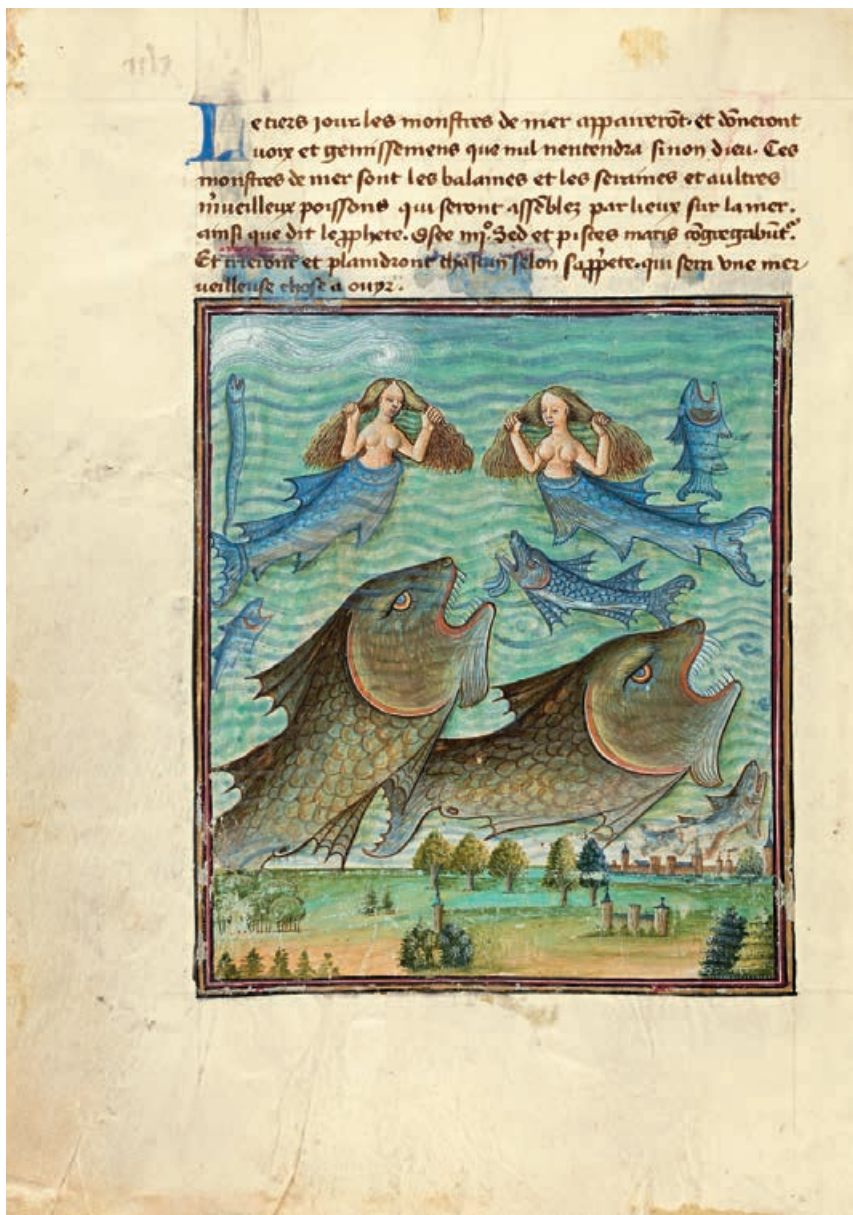 Le tiers jour. les monstres de mer apparrerōt. et dōneront
voix et gemissemens que nul nentendra sinon dieu. Ces
monstres de mer sont les balaines et les seraines et aultres
m̄ueilleux poissons qui seront assēblez par lieux sur la mer.
ainsi que dit le ꝓphete. Osee iiijº. Sed et pisces maris cōgregabūt᷑.
Et crieront et plaindront chascun selon sa
qui sera vne mer
ueilleuse chose a ouyr.